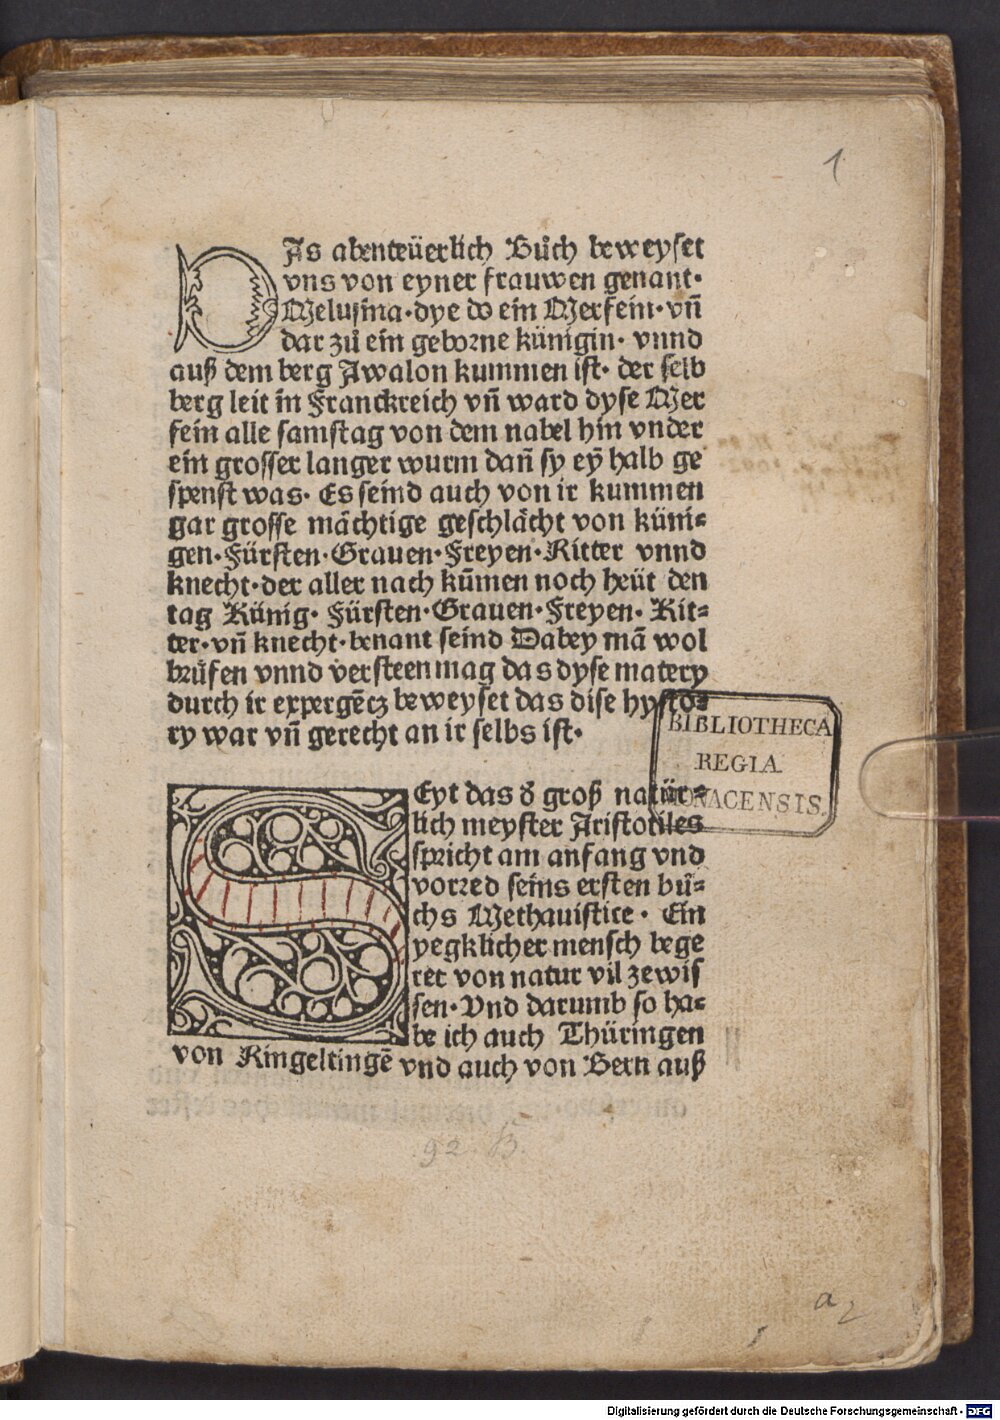 1
DAs abenteüerlich Bůch beweyset
vns von eyner frauwen genant·
Melusina·dye do ein Merfein·vñ
dar zů ein geborne künigin· vnnd
auß dem berg Awalon kummen ist· der selb
berg leit in Franckreich vñ ward dyse Mer
fein alle samstag von dem nabel hin vnder
ein grosser langer wurm dañ sy eÿ halb ge
spenst was· Es seind auch von ir kummen
gar grosse mächtige geschlächt von küni⸗
gen·Fürsten·Grauen·Freyen·Ritter vnnd
knecht·der aller nach kūmen noch heüt den
tag Künig· Fürsten·Grauen·Freyen· Rit⸗
ter·vñ knecht·benant seind Dabey mā wol
brüfen vnnd versteen mag das dyse matery
durch ir expergēcz beweyset das dise hysto⸗
ry war vñ gerecht an ir selbs ist·
BIBLIOTHECA
REGIA
MONACENSIS.
SEyt das d̕ groß natür⸗
lich meyster Aristotiles
spricht am anfang vnd
vorred seins ersten bů⸗
chs Methauistice· Ein
yegklicher mensch bege
ret von natur vil ze wis
sen·Vnd darumb so ha⸗
be ich auch Thüringen
von Ringeltingē vnd auch von Bern auß
92. B.
a 2
Digitalisierung gefördert durch die Deutsche Forschungsgemeinschaft - DFG